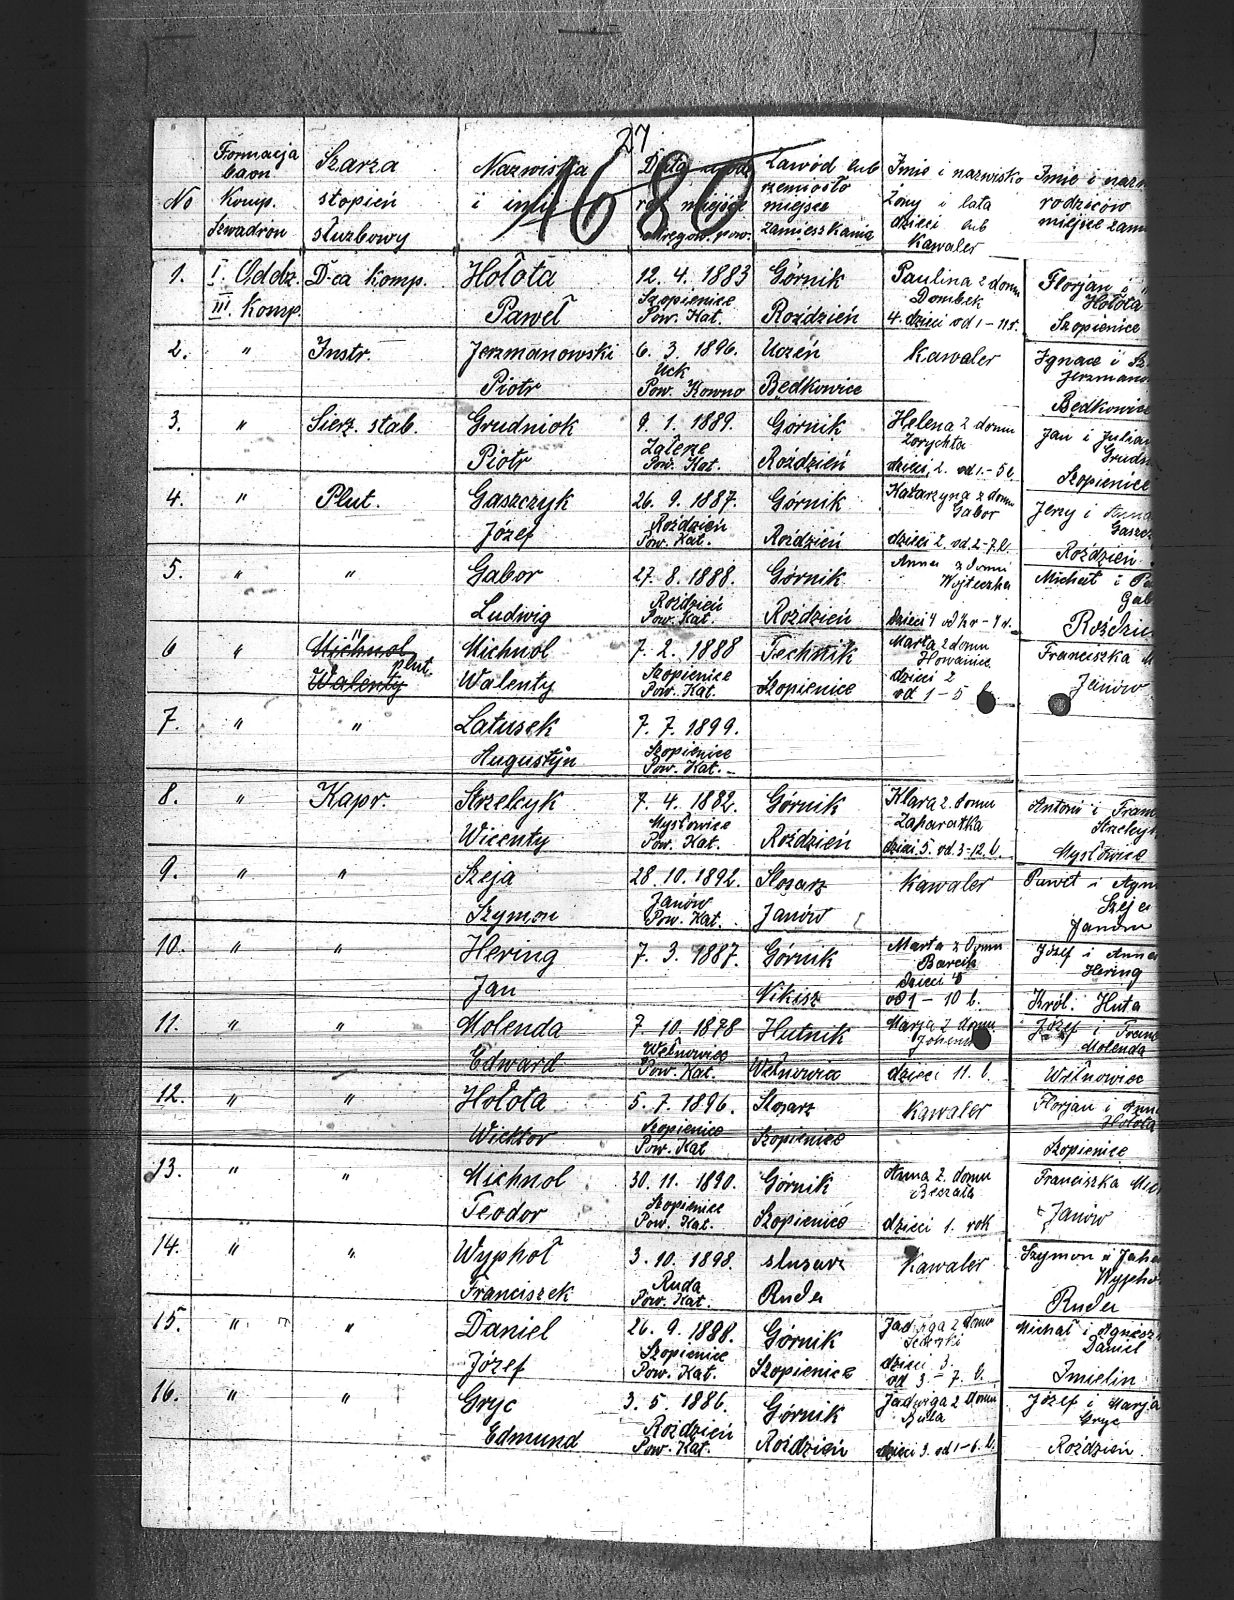 27
1680
No
Formacja
baon
Komp.
Szwadron
Szarża
stopień
służbowy
Nazwiska
i imię
Data
miejsce
okręgow. pow.
Zawód lub
rzemiosło
miejsce
zamieszkania
Imie i nazwisko
żony i lata
dzieci lub
Kawaler
Imie i
rodziców
miejsce
1. I. Oddz. D-ca Komp. Hołota 12. 4. 1883 Górnik Paulina z domu Florjan i
III Komp. Paweł Szopienice Pow. Kat. Roździeń Dombek 4. dzieci od 1-11 r. Hołota Szopienice
2. " Instr. Jerzmanowski 6. 3. 1896. Uczeń Kawaler Ignace i
Piotr Uck Pow. Kowno Będkowice Będkowice
3. " Sierż. stab. Grudniok 9. 1. 1889. Górnik Helena z domu Jan i
Piotr Załęże Pow. Kat. Roździeń Zorychta dzieci, 2. od 1.-5 l. Szopienice
4. " Plut. Gaszczyk 26. 9. 1887. Górnik Katarzyna z domu Jerzy i
Józef Roździeń Pow. Kat. Roździeń Gabor dzieci 2. od 2-7. l. Roździeń
5. " " Gabor 27. 8. 1888. Górnik Anna z domu Michał i
Ludwig Roździeń Pow. Kat. Roździeń Wojteczka
6 " Michnol " plut. Michnol 7. 2. 1888 Technik Marta z domu Franciszka
Walenty Walenty Szopienice Pow. Kat. Szopienice Howaniec dzieci 2 od 1-5 l. Janów
7. " " Latusek 7. 7. 1899.
Augustyn Szopienice Pow. Kat.
8. " Kapr. Strzelcyk 7. 4. 1882. Górnik Klara z. domu Antoni i
Wicenty Mysłowice Pow. Kat. Roździeń Zaharatka dzieci 5. od. 3-12. l. Mysłowice
9. " " Szeja 28. 10. 1892. Slosarz Kawaler Paweł i
Szymon Janów Pow. Kat. Janów Szeja Janów
10. " " Hering 7. 3. 1887. Górnik Marta z domu Józef i Anna
Jan Nikisz Barcik dzieci od 1 - 10 l. Hering Król. Huta
11. " " Molenda 7. 10. 1878 Hutnik Marja z domu Józef i
Edward Wełnowiec Pow. Kat. Wełnowiec dzieci 11. l. Molenda Wełnowiec
12. " " Hołota 5. 7. 1896. Slosarz Kawaler Florjan i
Wicktor Szopienice Pow. Kat Szopienice Hołota Szopienice
13. " " Michnol 30. 11. 1890. Górnik Anna z. domu Franciszka
Teodor Szopienice Pow. Kat. Szopienice dzieci 1. rok Janów
14. " " Wyphoł 3. 10. 1898. slusarz Kawaler Szymon i
Franciszek Ruda Pow. Kat. Ruda Ruda
15. " " Daniel 26. 9. 1888. Górnik Jadwiga z domu Michał i
Józef Szopienice Pow. Kat. Szopienice dzieci 3. od 3-7. l. Daniel Imielin
16. " " Gryc 3. 5. 1886. Górnik Jadwiga z domu Józef i Marja
Edmund Roździeń Pow. Kat. Roździeń Buła dzieci 3. od 1-6. l. Gryc Roździeń